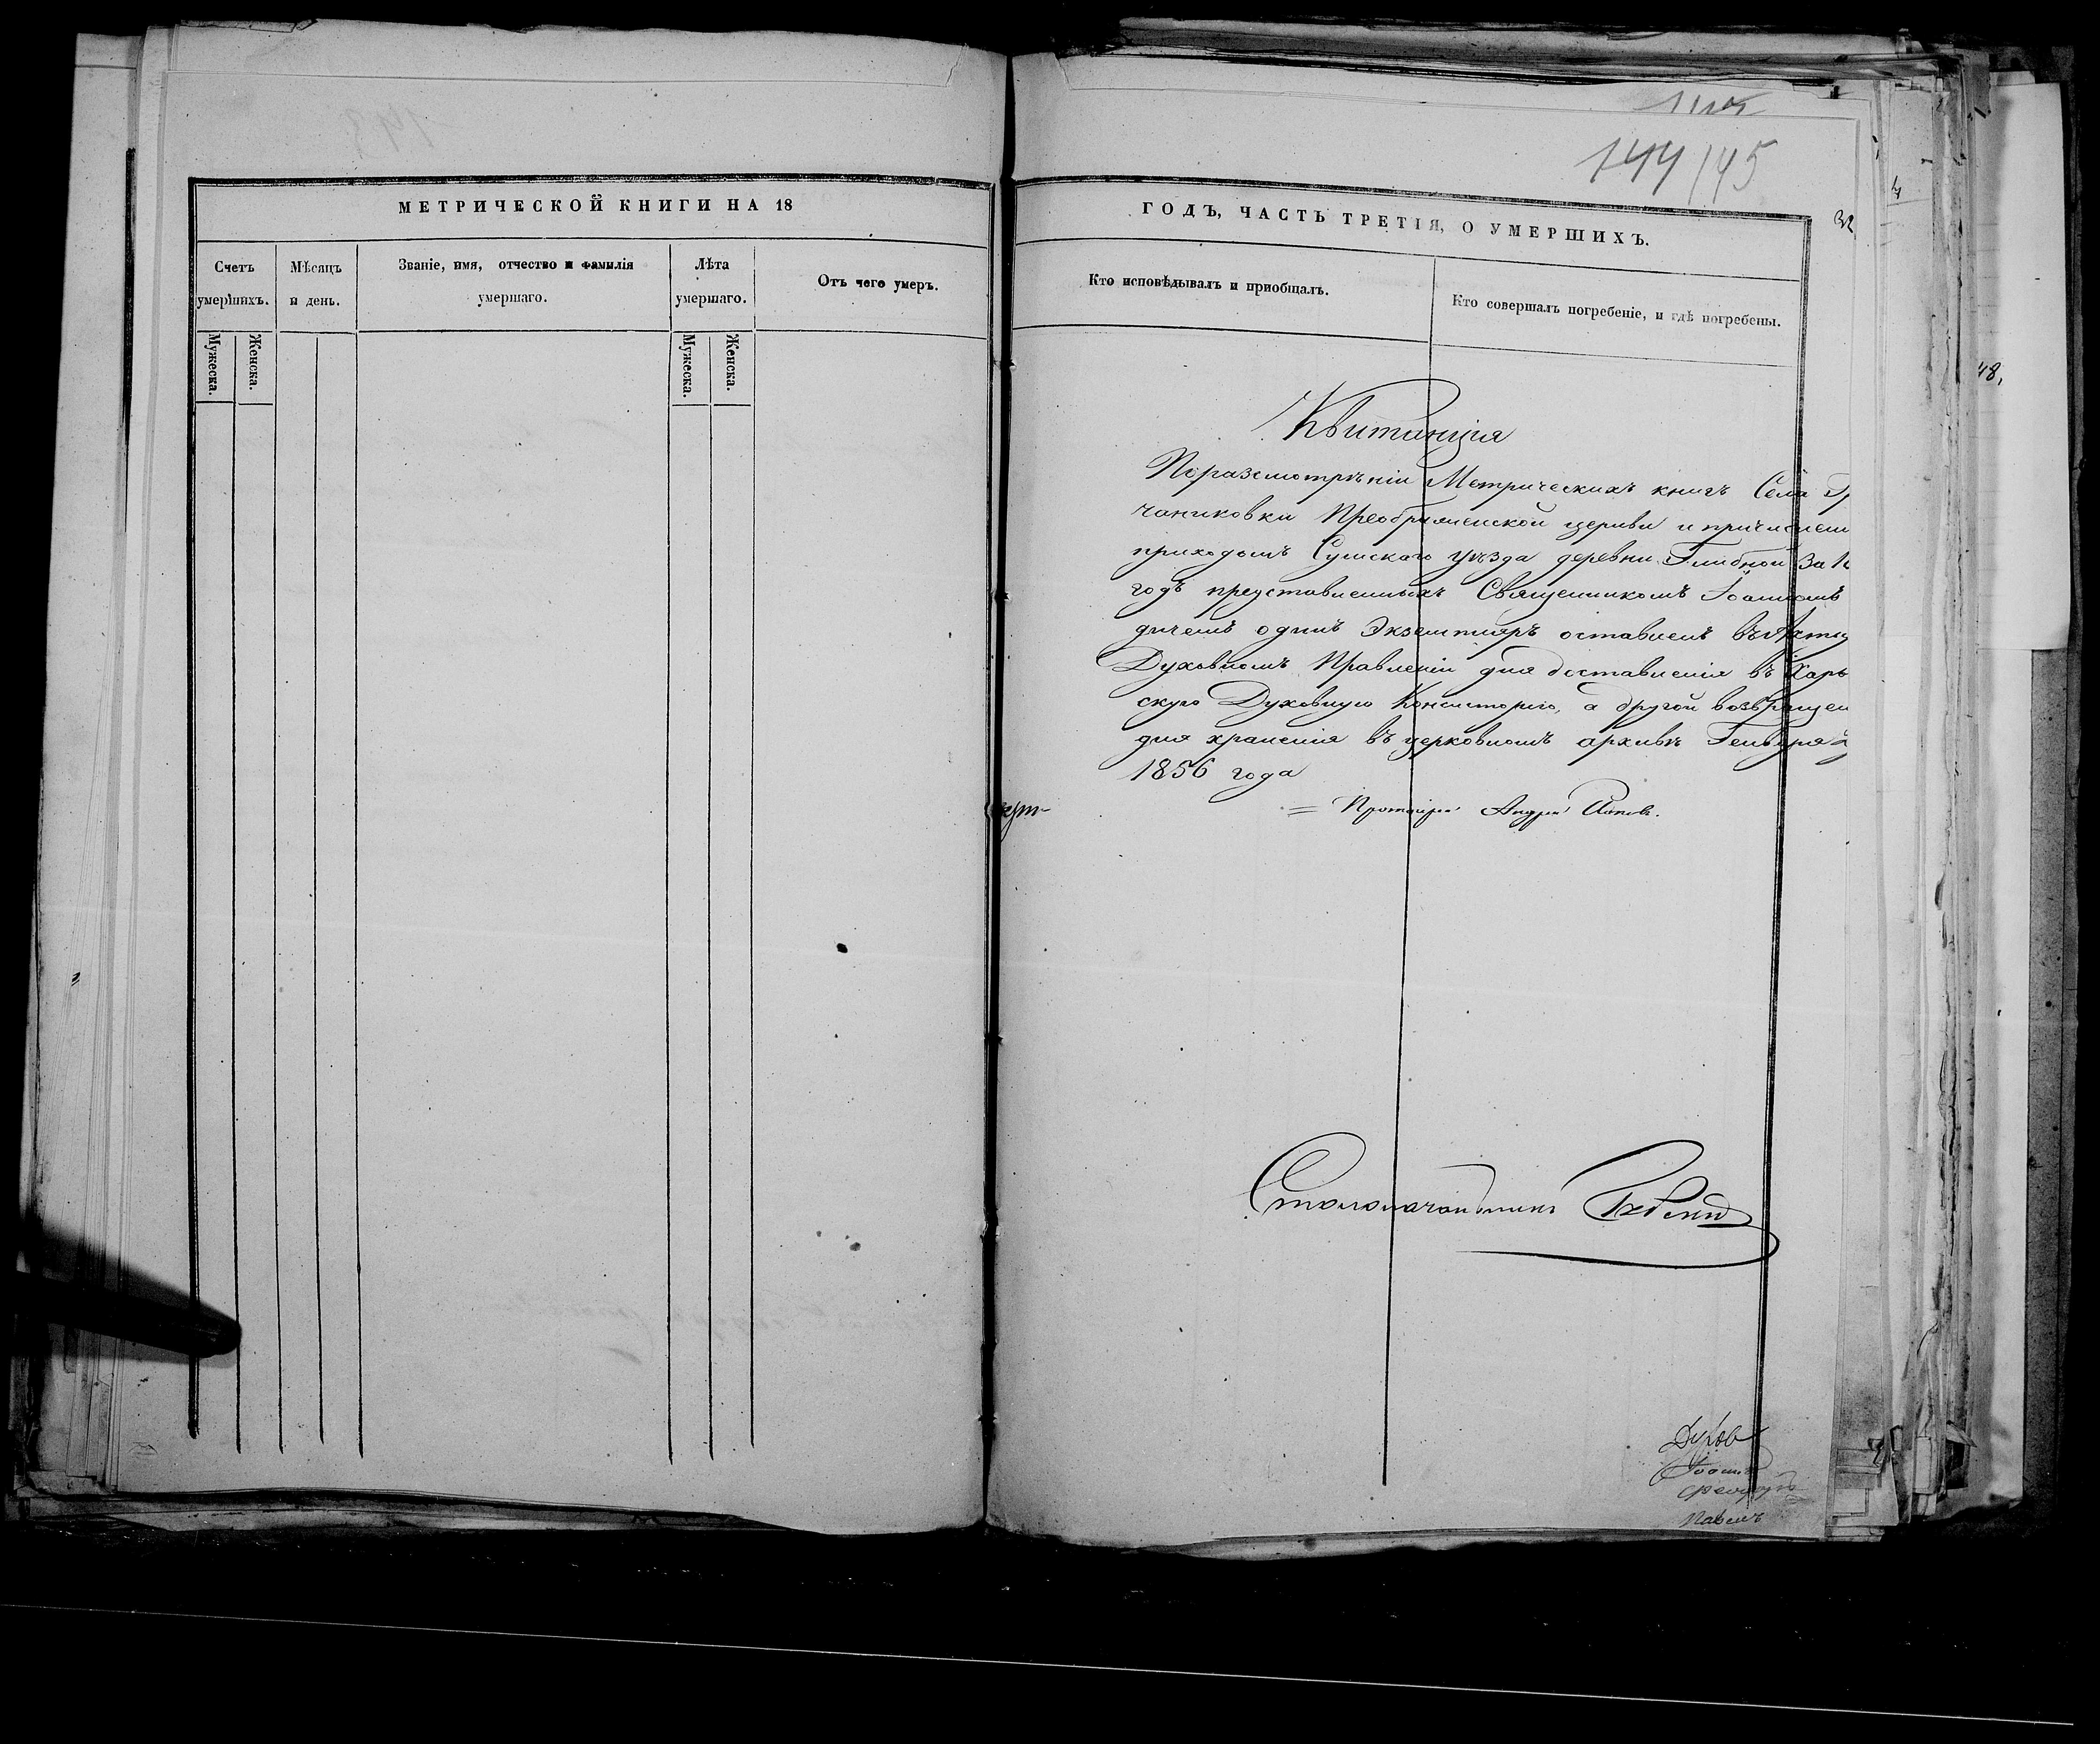 МЕТРИЧЕСКОЙ КНИГИ НА 18
Счетъ умершихъ.
Мужеска.
Женска.
Мѣсяцъ и день.
Званіе, имя, отчество и фамилія умершаго.
Лѣта умершаго.
Мужеска.
Женска.
Отъ чего умеръ.
144 145
ГОДЪ, ЧАСТЬ ТРЕТІЯ, О УМЕРШИХЪ.
Кто исповѣдывалъ и приобщалъ.
Кто совершалъ погребеніе, и гдѣ погребены.
48,
Квитанція
По разсмотрѣніи Метрическихъ книгъ Села
чаниковки Преображенской церкви и
приходомъ Сумскаго уѣзда деревни за 1
годъ представленныхъ Священникомъ Іоанномъ
дичемъ одинъ Экземпляръ оставленъ въ Ахты
Духовномъ Правленіи для доставленія въ Харь
скую Духовную Консисторію, а другой возвращен
для храненія въ церковномъ архивѣ Генваря
1856 года
Протоіерей Андрей
Столоначальникъ
Іоанн
Павелъ